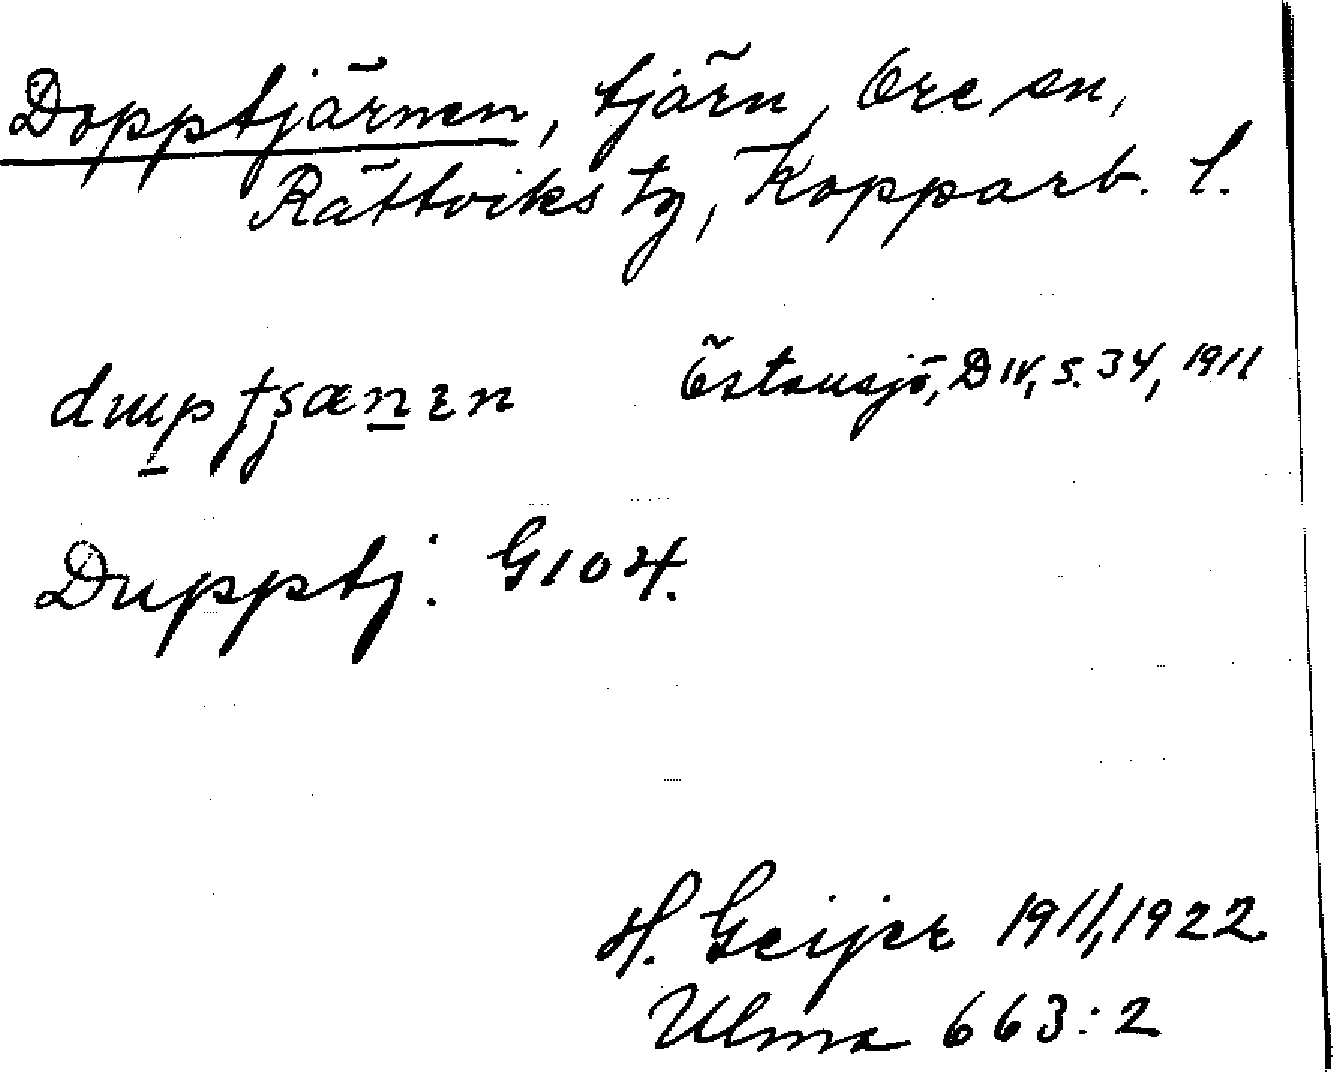 Dopptjärnen, tjärn, Ore sn,
Rättviks tg, Kopparb. l.
Östansjö, D IV, s. 34, 1911
Dupptj: G104.
H. Geijer 1911, 1922
Ulma 663:2